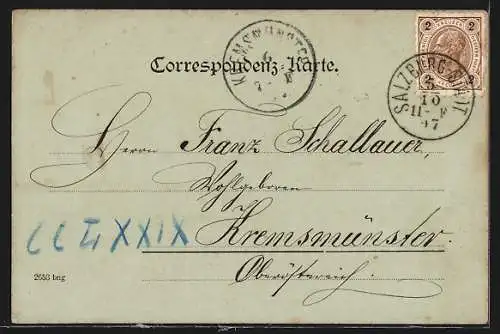 Correspondenz-Karte.
KREMSMÜNSTER
6
2 2
SALZBURG STADT
5
10
11-F
97
Herrn Franz Schallauer,
Wohlgeboren
Kremsmünster.
Oberösterreich.
2653 bng